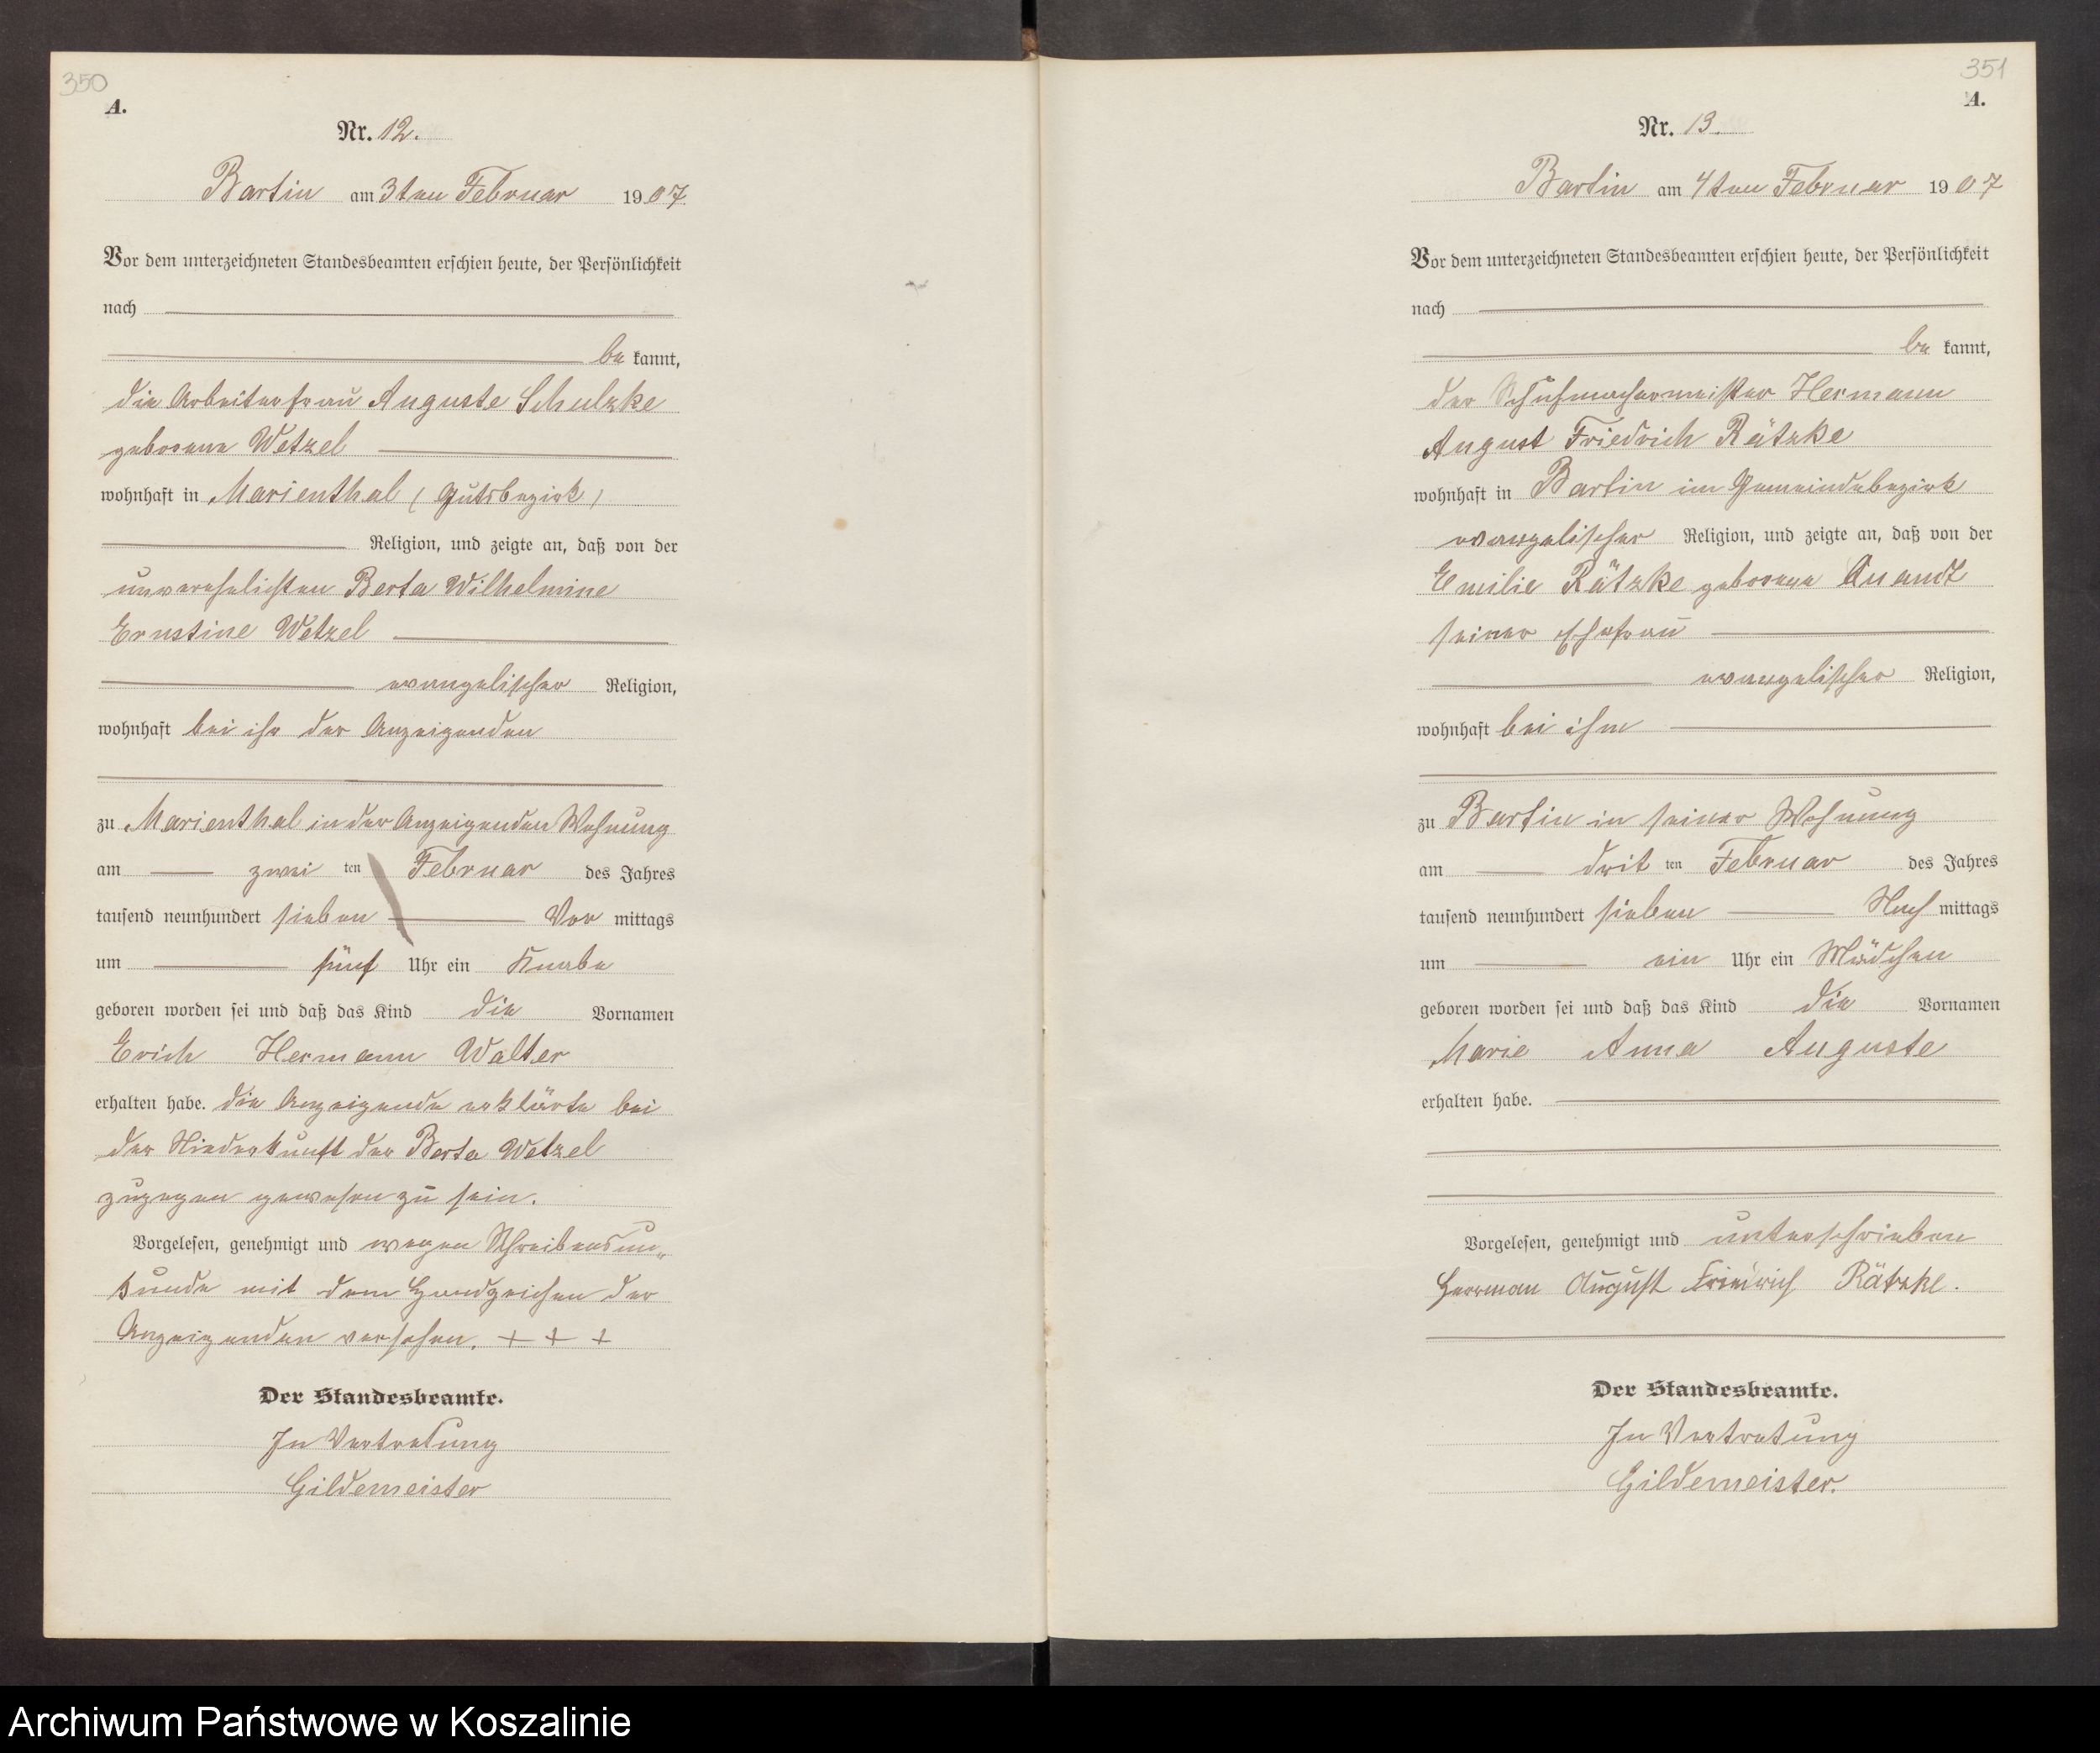 350
A.
Nr. 12.
Bartin am 3ten Februar 1907.
Vor dem unterzeichneten Standesbeamten erschien heute, der Persönlichkeit
nach
be kannt,
die Arbeiterfrau Auguste Schulzke
geborene Wetzel
wohnhaft in Marienthal (Gutsbezirk)
Religion, und zeigte an, daß von der
unverehelichten Berta Wilhelmine
Ernstine Wetzel
evangelischer Religion,
wohnhaft bei ihr der Anzeigenden
zu Marienthal in der Anzeigenden Wohnung
am zwei ten Februar des Jahres
tausend neunhundert sieben Vor mittags
um fünf Uhr ein Knabe
geboren worden sei und daß das Kind die Vornamen
Erich Hermann Walter
erhalten habe. Die Anzeigende erklärte bei
der Niederkunft der Berta Wetzel
zugegen gewesen zu sein.
Vorgelesen, genehmigt und wegen Schreibensun„
kunde mit dem Handzeichen der
Anzeigenden versehen. + + +
Der Standesbeamte.
In Vertretung
Gildemeister
351
A.
Nr. 13.
Bartin am 4ten Februar 1907
Vor dem unterzeichneten Standesbeamten erschien heute, der Persönlichkeit
nach
be kannt,
der Schuhmachermeister Hermann
August Friedrich Rätzke
wohnhaft in Bartin im Gemeindebezirk
evangelischer Religion, und zeigte an, daß von der
Emilie Rätzke geborene Quandt
seiner Ehefrau
evangelischer Religion,
wohnhaft bei ihm
zu Bartin in seiner Wohnung
am drit ten Februar des Jahres
tausend neunhundert sieben Nach mittags
um ein Uhr ein Mädchen
geboren worden sei und daß das Kind die Vornamen
Marie Anna Auguste
erhalten habe.
Vorgelesen, genehmigt und unterschrieben
Herrman August Friedrich Rätzke.
Der Standesbeamte.
In Vertretung
Gildemeister.
Archiwum Państwowe w Koszalinie